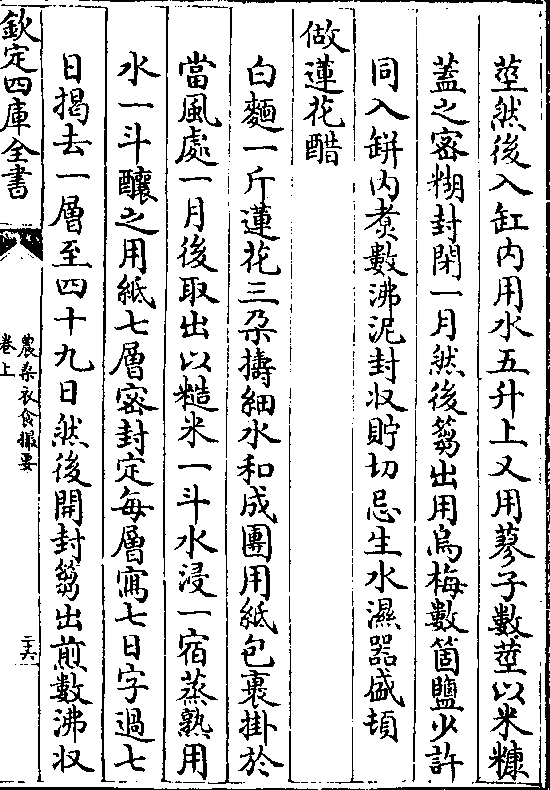 莖然後入缸内用水五升上又用蓼子數莖以米糠
蓋之密糊封閉一月然後篘出用烏梅數箇鹽少許
同入缾内煑數沸泥封收貯切忌生水濕器盛頓
做蓮花醋
白麵一斤蓮花三朶擣細水和成團用紙包裹掛於
當風處一月後取出以糙米一斗水浸一宿蒸熟用
水一斗釀之用紙七層密封定每層寫七日字過七
日揭去一層至四十九日然後開封篘出煎數沸收
欽定四庫全書
農桑衣食撮要
卷上
二六